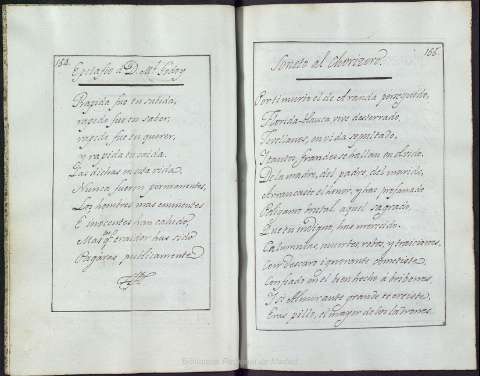 184.
Epitafio á D. Ml. Godoy
Rapida fue tu subida,
rapido fue tu saber,
rapido fue tu querer,
y rapida tu caída.
Las dichas en esta vida
Nunca fueron permanentes,
Los hombres mas eminentes
E inocentes han caído,
Mas qe. traidor has sido
Pagaras publicamente.
185.
Soneto al Chorizero.
Por ti murio el de Aranda perseguido,
Florida-blanca vive desterrado,
Jovellanos, en vida sepultado,
Y quantos grandes se hallan en olvido.
De la madre, del padre, del marido,
Arrancaste el honor, y has profanado
Qual sano brutal, aquel sagrado,
Que tu indigno, has
Calumnias, muertes, robos, y traiciones
Con descaro ignorante
Confiado en el bien hecho á bribones
Y si Almirante grande te creiste
Eras pillo, el mayor de los ladrones.
Biblioteca Regional de Madrid